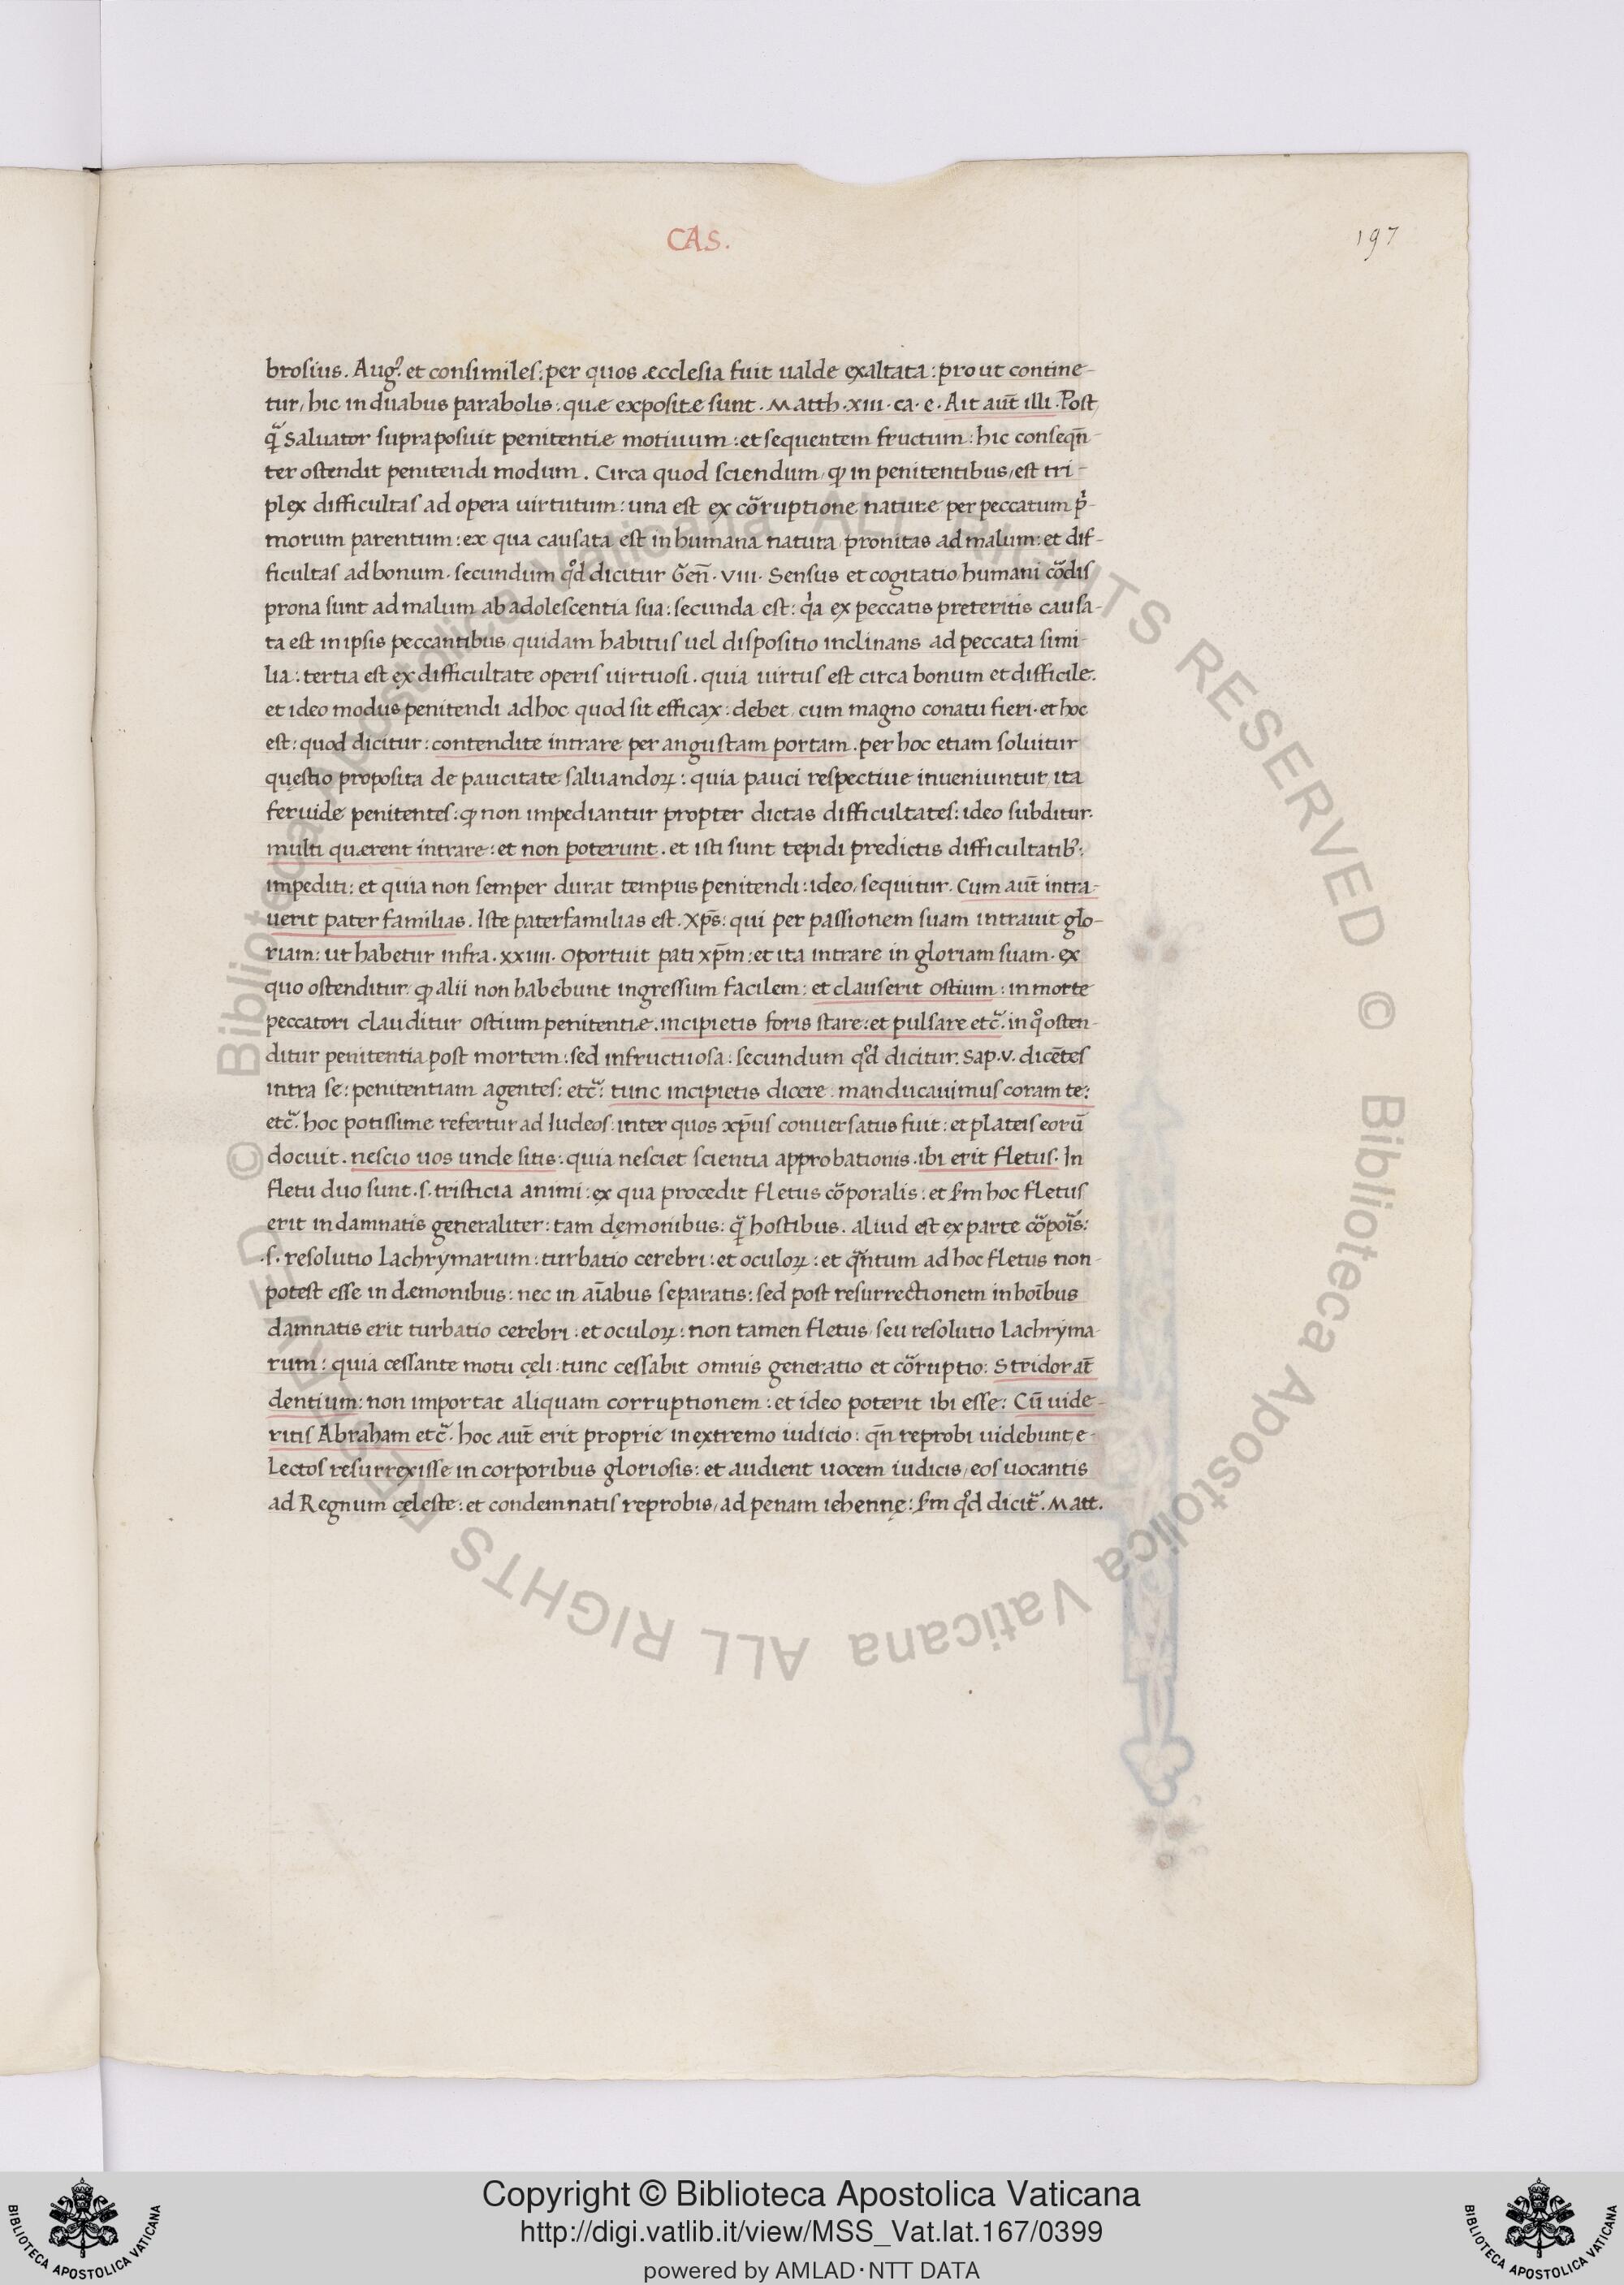 CAS.
197
brosius. Augꝰ. et consimiles: per quos ęcclesia fuit ualde exaltata: prout contine-
tur, hic in duabus parabolis: quæ expositæ sunt. Matth. xiii. ca. e. Ait aut̄ illi. Post
q̃ Saluator supra posuit penitentiæ motiuum: et sequentem fructum: hic conseqn̄-
ter ostendit penitendi modum. Circa quod sciendum, ꝙ in penitentibus, est tri-
plex difficultas ad opera uirtutum: una est ex cõruptione naturæ per peccatum pⁱ-
morum parentum: ex qua causata est in humana natura pronitas ad malum: et dif-
ficultas ad bonum. secundum qᵒd dicitur Gen̄. viii. Sensus et cogitatio humani cõdis
prona sunt ad malum ab adolescentia sua: secunda est: qⁱa ex peccatis preteritis causa-
ta est in ipsis peccantibus quidam habitus uel dispositio inclinans ad peccata simi-
lia: tertia est ex difficultate operis uirtuosi. quia uirtus est circa bonum et difficile.
et ideo modus penitendi ad hoc quod sit efficax: debet cum magno conatu fieri. et hoc
est: quod dicitur: contendite intrare per angustam portam. per hoc etiam soluitur
quęstio proposita de paucitate saluandoꝝ: quia pauci respectiue inueniuntur, ita
feruide penitentes: ꝙ non impediantur propter dictas difficultates: ideo subditur.
multi quærent intrare: et non poterunt. et isti sunt tepidi predictis difficultatibꝰ:
impediti: et quia non semper durat tempus penitendi: ideo, sequitur. Cum aut̄ intra-
uerit pater familias. Iste paterfamilias est. Xp̄s: qui per passionem suam intrauit glo-
riam: ut habetur infra. xxiiii. Oportuit pati xp̄m: et ita intrare in gloriam suam. ex
quo ostenditur, ꝙ alii non habebunt ingressum facilem: et clauserit ostium: in morte
peccatori clauditur ostium penitentiæ. incipietis foris stare: et pulsare etc̃. in qᵒ osten-
ditur penitentia post mortem: sed infructuosa: secundum qᵒd dicitur. Sap. v. dicētes
intra se: penitentiam agentes: etc̃: tunc incipietis dicere. manducauimus coram te:
etc̃. hoc potissime refertur ad Iudeos: inter quos xp̄us conuersatus fuit: et plateis eorū
docuit. nescio uos unde sitis: quia nesciet scientia approbationis. ibi erit fletus. In
fletu duo sunt. s. tristicia animi: ex qua procedit fletus cõporalis: et ẜm hoc fletus
erit in damnatis generaliter: tam dęmonibus: q̃ hostibus. aliud est ex parte cõpoīs:
.s. resolutio lachrymarum: turbatio cerebri: et oculoꝝ: et qñtum ad hoc fletus non
potest esse in dæmonibus: nec in aīabus separatis: sed post resurrectionem in hoībus
damnatis erit turbatio cerebri: et oculoꝝ: non tamen fletus, seu resolutio lachryma-
rum: quia cessante motu cęli: tunc cessabit omnis generatio et cõruptio: Stridor at̄
dentium: non importat aliquam corruptionem: et ideo poterit ibi esse: Cū uide-
ritis Abraham etc̃. hoc aut̄ erit proprie in extremo iudicio: qn̄ reprobi uidebunt, e-
lectos resurrexisse in corporibus gloriosis: et audient uocem iudicis, eos uocantis
ad Regnum cęleste: et condemnatis reprobis, ad penam iehennę: ẜm qᵒd dicit̃. Matt.
© Biblioteca Apostolica Vaticana ALL RIGHTS RESERVED
© Biblioteca Apostolica Vaticana ALL RIGHTS RESERVED
Copyright © Biblioteca Apostolica Vaticana
http://digi.vatlib.it/view/MSS_Vat.lat.167/0399
powered by AMLAD·NTT DATA
BIBLIOTECA APOSTOLICA VATICANA
BIBLIOTECA APOSTOLICA VATICANA